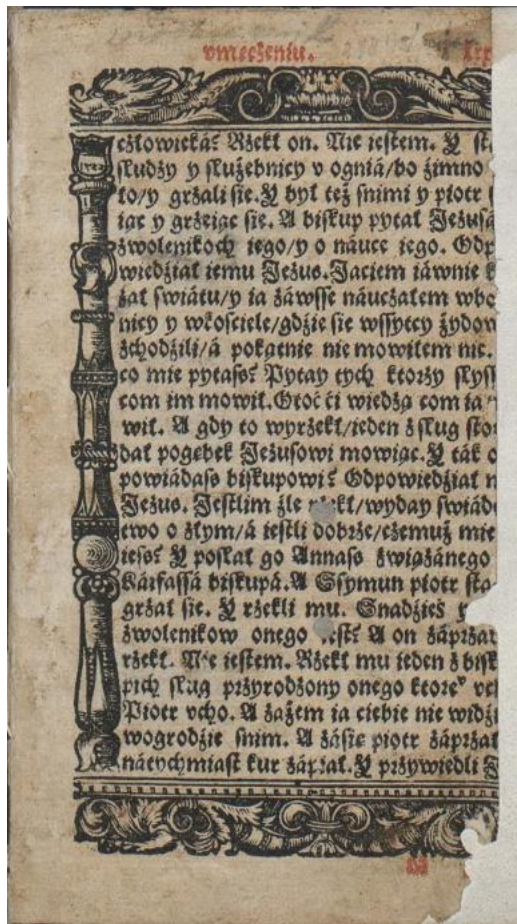 vmęczeniu. xx
człowieká? Rzekł on. Nie iestem. Y st
słudzy y służebnicy v ogniá/bo zimno
to/y grzali sie. Y był też snimi y piotr
iąc y grzeiąc sie. A biskup pytał Jezusá
zwolenikoch iego/y o náuce iego. Odp
wiedział iemu Jezus. Jaciem iáwnie
zał swiátu/y ia záwsse náuczałem wbo
nicy y wkościele/gdzie sie wssytcy żydow
zchodzili/á pokątnie nie mowiłem nic.
co mie pytasz? Pytay tych ktorzy słys
com im mowił. Otoć ci wiedzą com ia
wił. A gdy to wyrzekł/ieden z sług sto
dał pogębek Jezusowi mowiąc. Y ták o
powiádasz biskupowi? Odpowiedział m
Jezus. Jestlim źle rzekł/wyday swiáde
ctwo o złym/á iestli dobrze/czemuż mie
iesz? Y posłał go Annasz związánego
Káifassá biskupá. A Ssymun piotr sta
grzał sie. Y rzekli mu. Snadzieś
zwolenikow onego iest? A on záprzał
rzekł. Nie iestem. Rzekł mu ieden z bisk
pich sług przyrodzony onego ktoreº vc
Piotr vcho. A zażem ia ciebie nie widzi
wogrodzie snim. A zásie piotr záprzał
nátychmiast kur zápiał. Y przywiedli J